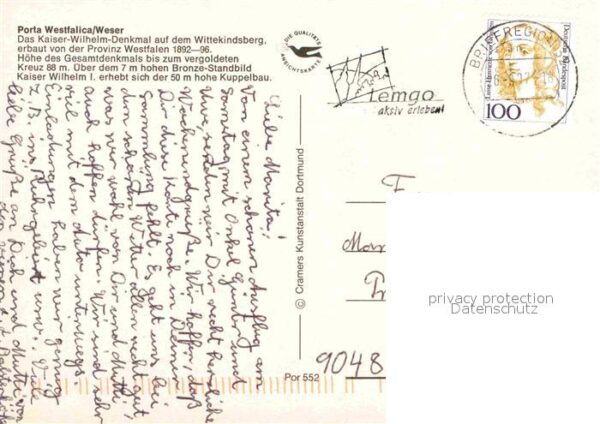 Porta Westfalica/Weser
Das Kaiser-Wilhelm-Denkmal auf dem Wittekindsberg,
erbaut von der Provinz Westfalen 1892—96.
Höhe des Gesamtdenkmals bis zum vergoldeten
Kreuz 88 m. Über dem 7 m hohen Bronze-Standbild
Kaiser Wilhelm I. erhebt sich der 50 m hohe Kuppelbau.
DIE QUALITÄTS
ANSICHTSKARTE
Lemgo
aktiv erleben!
BRIEFREGION
Deutsche Bundespost
100
Liebe Marita!
Von einem schönen Ausflug am
Sonntag mit Onkel Günter und
Uwe, senden wir Dir recht herzliche
Wochenendgrüße. Wir hoffen, daß
Dir diese Karte noch in Deiner
Sammlung fehlt. Es geht uns bei
dem schönen Wetter allen recht gut
was wir wohl von Dir und Mutti
auch hoffen dürfen. Wir sind sehr
viel mit dem Auto unterwegs.
Einladungen haben wir genug
z.B. ins Ruhrgebiet usw. Viele
liebe Grüße an Dich und Mutti von
© Cramers Kunstanstalt Dortmund
Por 552
9048
privacy protection
Datenschutz